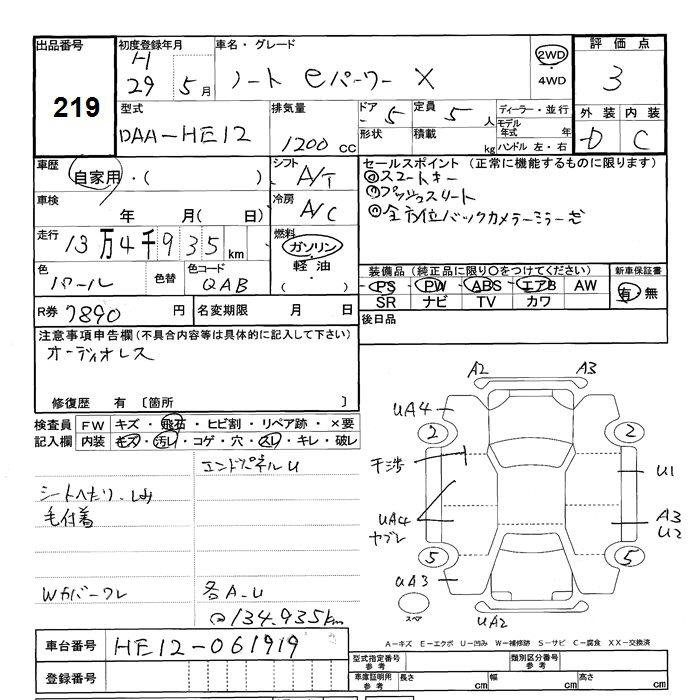 出品番号 初度登録年月 車名・グレード 評価点
219
H 29 5月 ノート eパワー X 2WD ・ 4WD 3
型式 排気量 ドア 5 定員 5人 ディーラー・並行 外装 内装
DAA-HE12 1200cc 形状 積載 kg モデル年式 年 D C
ハンドル 左・右
車歴 自家用・( ) シフト A/T セールスポイント (正常に機能するものに限ります)
◎スマートキー
車検 年 月(日) 冷房 A/C ◎プッシュスタート
◎全方位バックカメラーミラーモ
走行 13万4千935km 燃料 ガソリン・軽油・( )
色 パール 色替 色コード QAB
装備品 (純正品に限り○をつけてください) 新車保証書
PS PW ABS エアB AW 有・無
SR ナビ TV カワ
R券 7890円 名変期限 月 日
後日品
注意事項申告欄(不具合内容等は具体的に記入して下さい)
オーディオレス
修復歴 有 〔箇所 〕
検査員 FW キズ・飛石・ヒビ割・リペア跡・×要
記入欄 内装 キズ・汚レ・コゲ・穴・スレ・キレ・破レ
エンドパネルU
シートヘたり、しみ
毛付着
Wカバーワレ 各A.U
◎134.935km
A2 A3
UA4
2 2
干渉 U1
UA4 A3
ヤブレ U2
5 5
UA3
スペア UA2
A-キズ E-エクボ U-凹み W-補修跡 S-サビ C-腐食 XX-交換済
車台番号 HE12-061919
型式指定番号 参考 類別区分番号 参考
登録番号
車庫証明用 参考 長さ cm 幅 cm 高さ cm